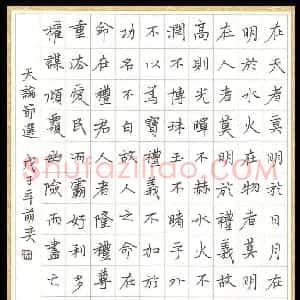 在天者莫明於日月在
明於水火在物者莫明
在人者莫明於禮義故
高則光暉不赫水火不
潤不博珠玉不睹乎外
不以為寶禮義不加於
功名不白故人之命在
命在禮君人者隆禮尊
重法愛民而霸好利多
權謀傾覆幽險而盡亡
天論節選 戊子年
Shufaziliao.com